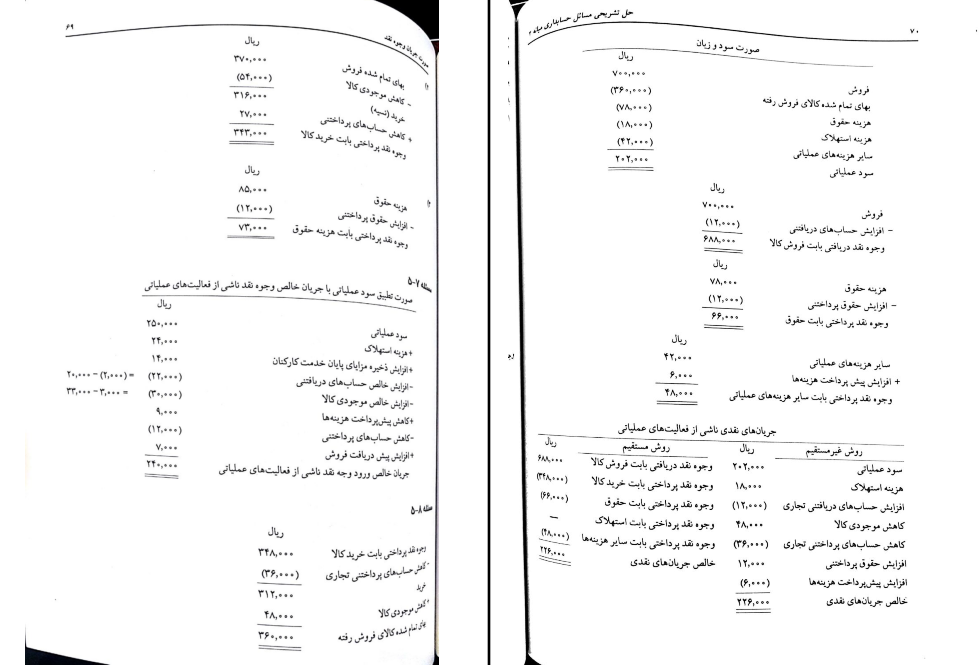 ۶۹
صورت جریان وجوه نقد
ریال
بهای تمام شده فروش ۳۷۰,۰۰۰
- کاهش موجودی کالا (۵۴,۰۰۰)
خرید (نسیه) ۳۱۶,۰۰۰
+ کاهش حساب‌های پرداختنی ۲۷,۰۰۰
وجوه نقد پرداختی بابت خرید کالا ۳۴۳,۰۰۰
ریال
هزینه حقوق ۸۵,۰۰۰
- افزایش حقوق پرداختنی (۱۲,۰۰۰)
وجوه نقد پرداختی بابت هزینه حقوق ۷۳,۰۰۰
مسئله ۷-۵
صورت تطبیق سود عملیاتی با جریان خالص وجوه نقد ناشی از فعالیت‌های عملیاتی
ریال
سود عملیاتی ۲۵۰,۰۰۰
+هزینه استهلاک ۲۴,۰۰۰
+افزایش ذخیره مزایای پایان خدمت کارکنان ۱۴,۰۰۰
-افزایش خالص حساب‌های دریافتنی (۲۲,۰۰۰) = (۲,۰۰۰) - ۲۰,۰۰۰
-افزایش خالص موجودی کالا (۳۰,۰۰۰) = ۳,۰۰۰ - ۳۳,۰۰۰
+کاهش پیش‌پرداخت هزینه‌ها ۹,۰۰۰
-کاهش حساب‌های پرداختنی (۱۲,۰۰۰)
+افزایش پیش دریافت فروش ۷,۰۰۰
جریان خالص ورود وجه نقد ناشی از فعالیت‌های عملیاتی ۲۴۰,۰۰۰
۸-۵
ریال
وجوه نقد پرداختی بابت خرید کالا ۳۴۸,۰۰۰
- کاهش حساب‌های پرداختنی تجاری (۳۶,۰۰۰)
خرید ۳۱۲,۰۰۰
+ کاهش موجودی کالا ۴۸,۰۰۰
بهای تمام شده کالای فروش رفته ۳۶۰,۰۰۰
۷۰ حل تشریحی مسائل حسابداری میانه ۲
صورت سود و زیان
ریال
فروش ۷۰۰,۰۰۰
بهای تمام شده کالای فروش رفته (۳۶۰,۰۰۰)
هزینه حقوق (۷۸,۰۰۰)
هزینه استهلاک (۱۸,۰۰۰)
سایر هزینه‌های عملیاتی (۴۲,۰۰۰)
سود عملیاتی ۲۰۲,۰۰۰
ریال
فروش ۷۰۰,۰۰۰
- افزایش حساب‌های دریافتنی (۱۲,۰۰۰)
وجوه نقد دریافتی بابت فروش کالا ۶۸۸,۰۰۰
ریال
هزینه حقوق ۷۸,۰۰۰
- افزایش حقوق پرداختنی (۱۲,۰۰۰)
وجوه نقد پرداختی بابت حقوق ۶۶,۰۰۰
ریال
سایر هزینه‌های عملیاتی ۴۲,۰۰۰
+ افزایش پیش پرداخت هزینه‌ها ۶,۰۰۰
وجوه نقد پرداختی بابت سایر هزینه‌های عملیاتی ۴۸,۰۰۰
جریان‌های نقدی ناشی از فعالیت‌های عملیاتی
روش غیرمستقیم ریال روش مستقیم ریال
سود عملیاتی ۲۰۲,۰۰۰ وجوه نقد دریافتی بابت فروش کالا ۶۸۸,۰۰۰
هزینه استهلاک ۱۸,۰۰۰ وجوه نقد پرداختی بابت خرید کالا (۳۴۸,۰۰۰)
افزایش حساب‌های دریافتنی تجاری (۱۲,۰۰۰) وجوه نقد پرداختی بابت حقوق (۶۶,۰۰۰)
کاهش موجودی کالا ۴۸,۰۰۰ وجوه نقد پرداختی بابت استهلاک —
کاهش حساب‌های پرداختنی تجاری (۳۶,۰۰۰) وجوه نقد پرداختی بابت سایر هزینه‌ها (۴۸,۰۰۰)
افزایش حقوق پرداختنی ۱۲,۰۰۰ خالص جریان‌های نقدی ۲۲۶,۰۰۰
افزایش پیش‌پرداخت هزینه‌ها (۶,۰۰۰)
خالص جریان‌های نقدی ۲۲۶,۰۰۰